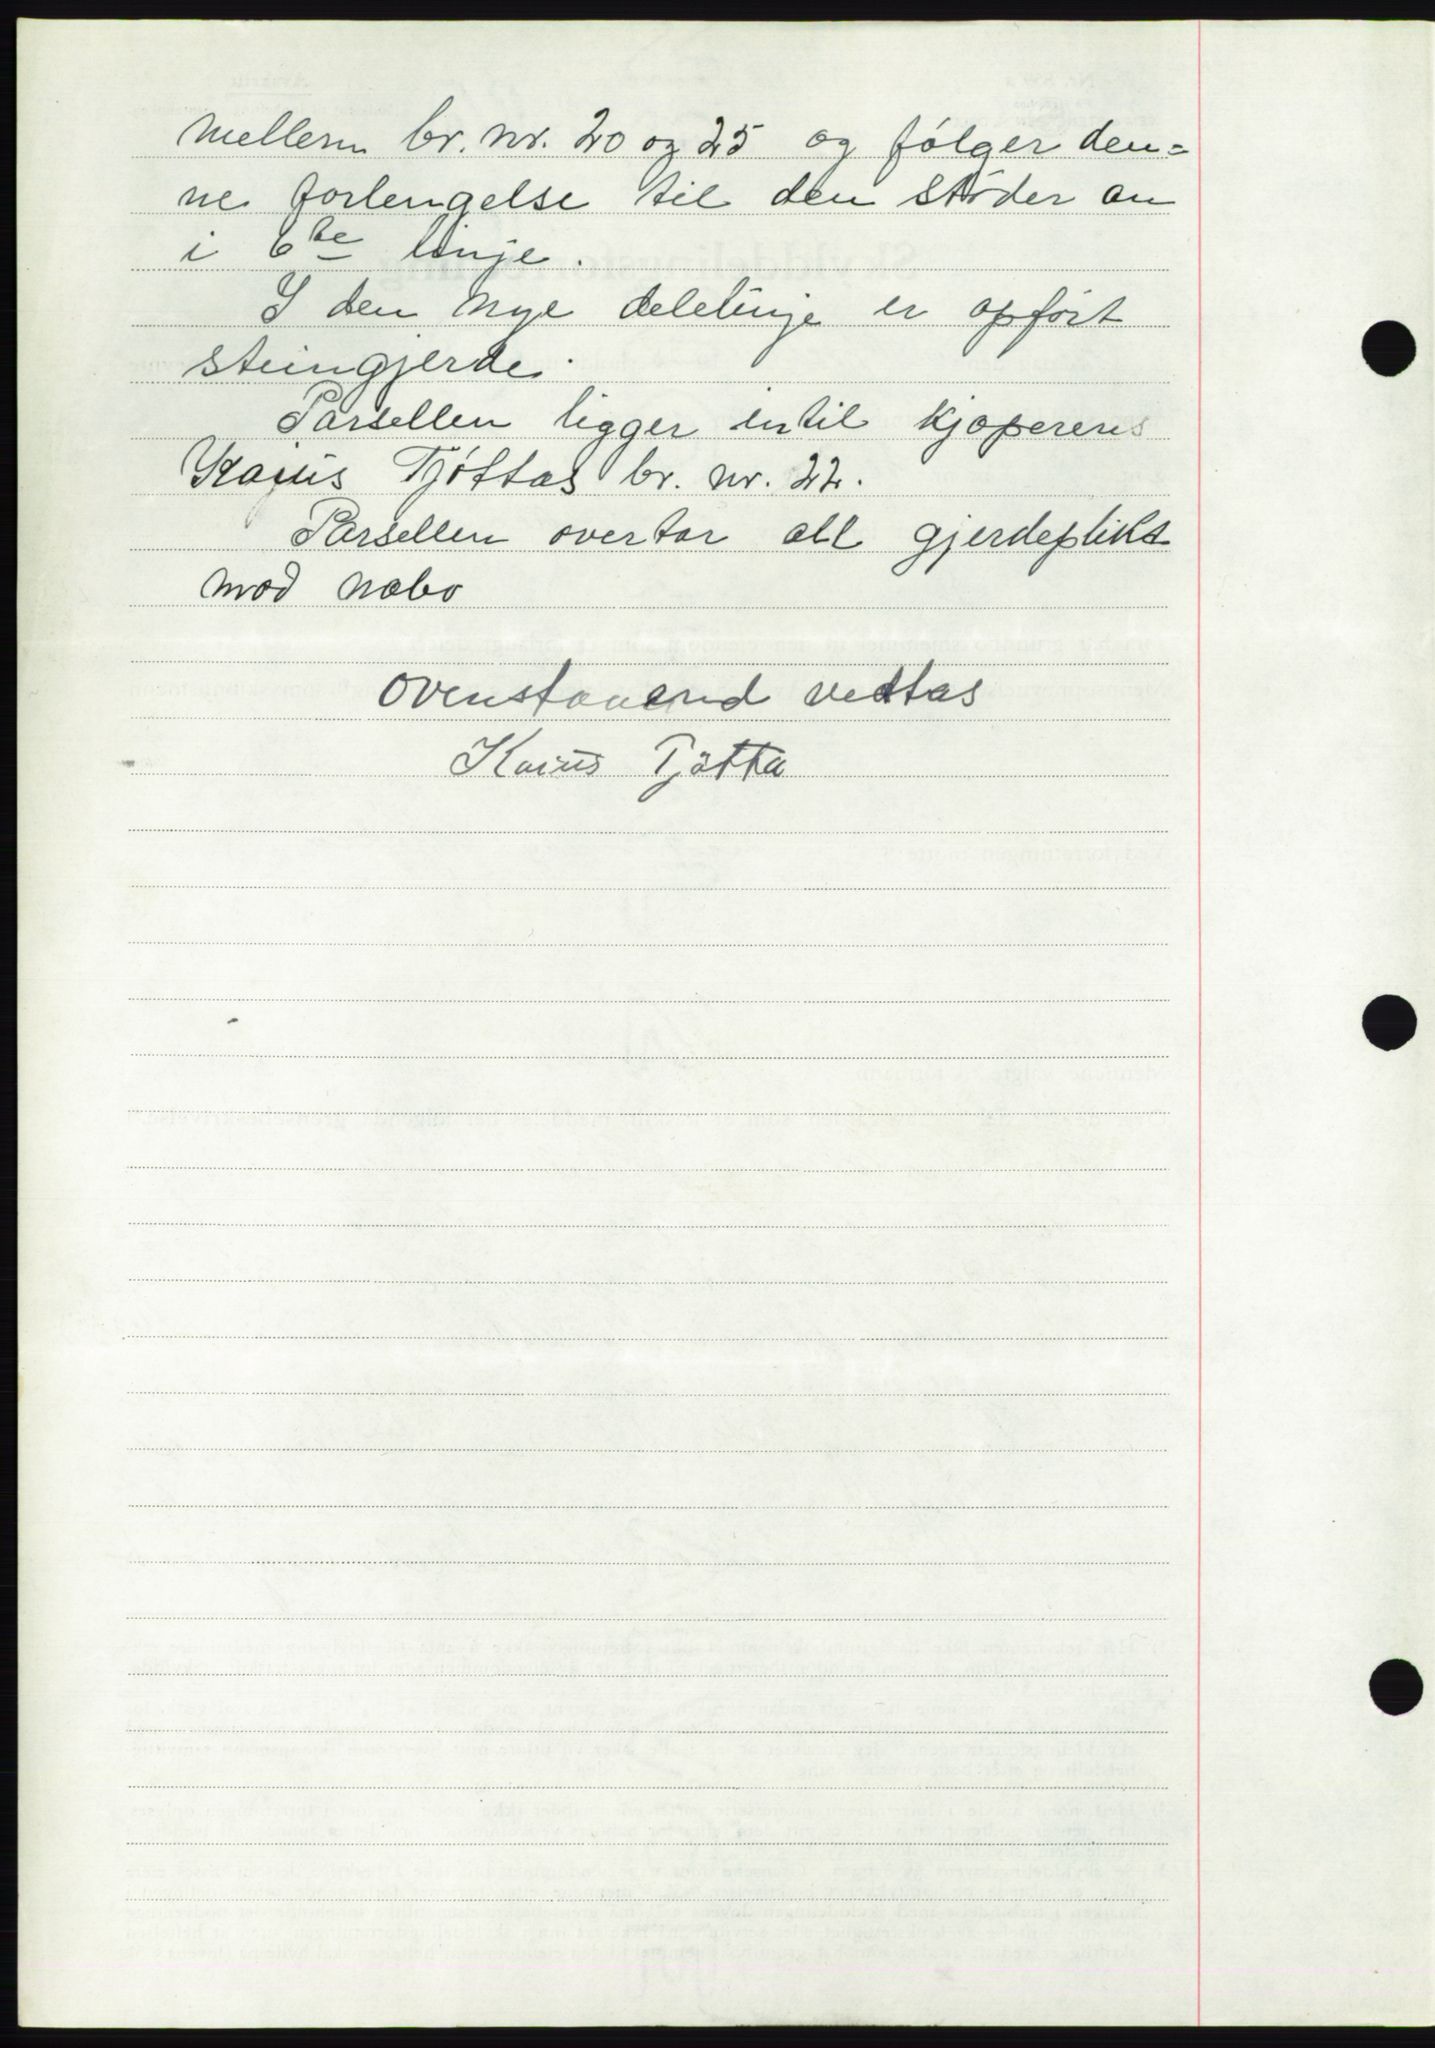 mellem br. nr. 20 og 25 og følger den=
ne forlengelse til den støder an
i 6te linje.
I den nye delelinje er opført
steingjerde.
Parsellen ligger intil kjøperens
Kajus Tjøttas br. nr. 22.
Parsellen overtar all gjerdeplikt
mod nabo
Ovenstaaend vedtas
Kaius Tjøtta